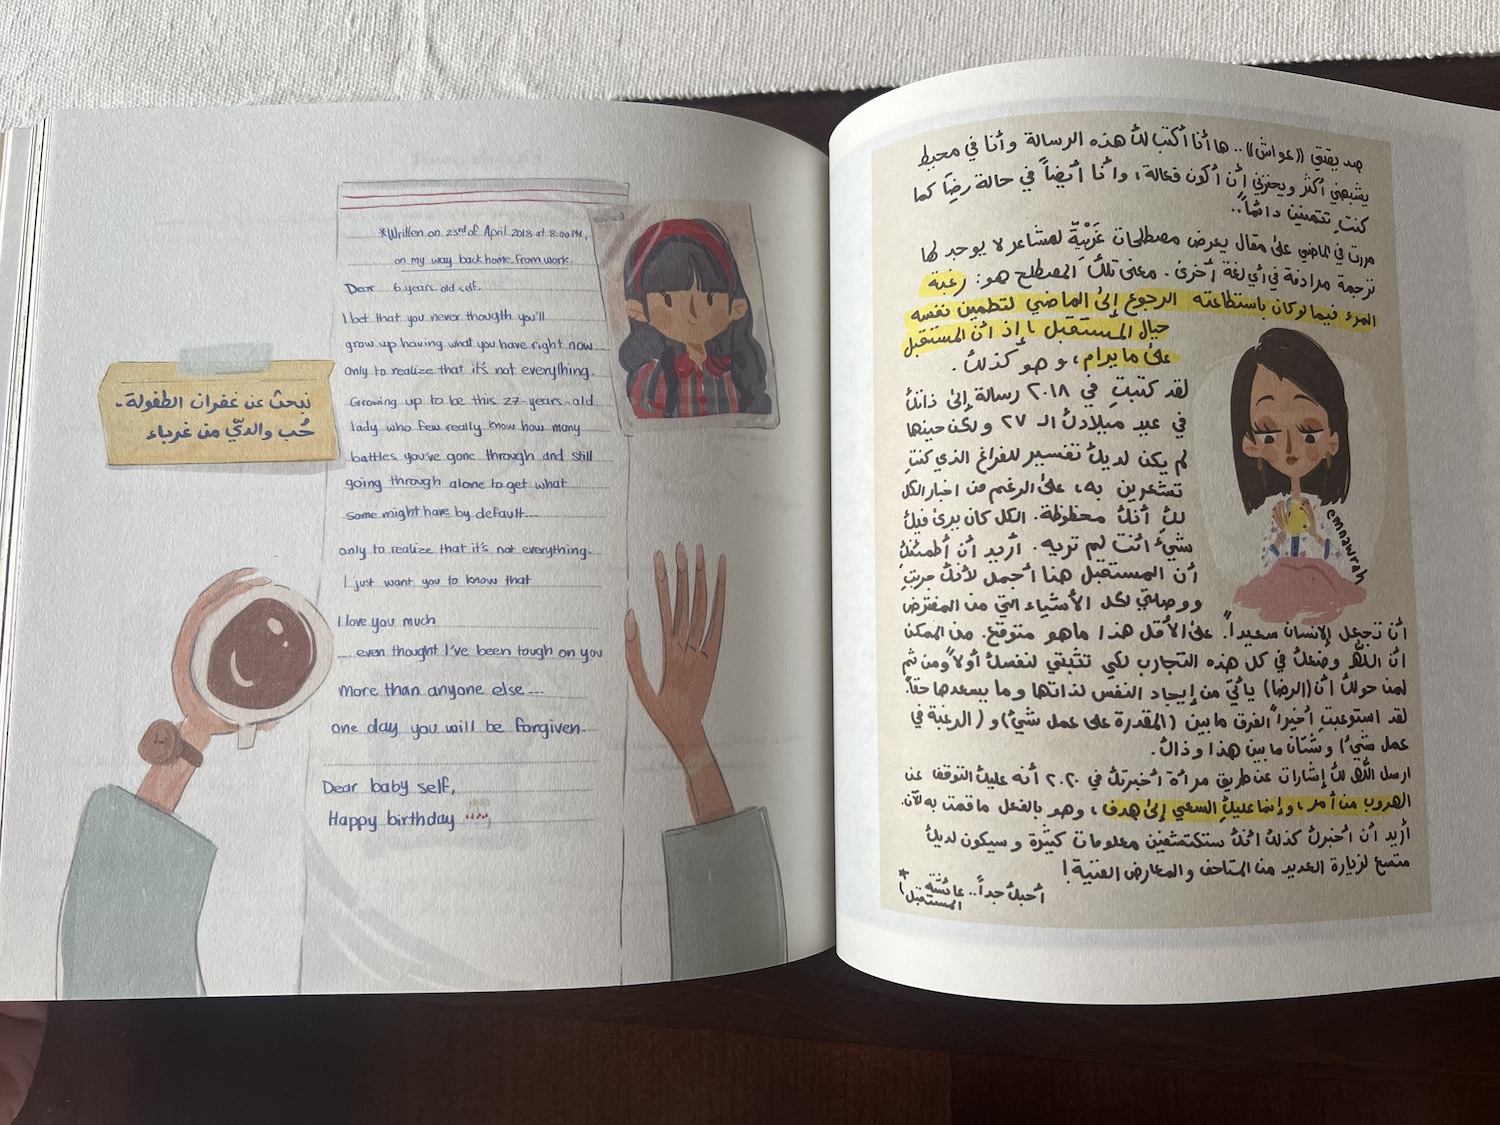 *Written on 23rd of April 2018 at 8:00 PM,
on my way back home from work.
Dear 6 years old self.
I bet that you never thougth you'll
grow up having what you have right now
only to realize that it's not everything.
Growing up to be this 27-years-old
lady who few really know how many
battles you've gone through and still
going through alone to get what
some might have by default...
only to realize that it's not everything.
I just want you to know that
I love you much
... even thought I've been tough on you
more than anyone else...
one day you will be forgiven.
Dear baby self,
Happy birthday
نبحث عن غفران الطفولة.
حُب والديّ من غرباء
صديقتي ((عواش)).. ها أنا أكتب لكِ هذه الرسالة وأنا في محيط
يشبهني أكثر ويحفزني أن أكون فعالة، وأنا أيضاً في حالة رضاً كما
كنتِ تتمنين دائماً..
مررت في الماضي على مقال يعرض مصطلحات غَرْبِيّة لمشاعر لا يوجد لها
ترجمة مرادفة في أي لغة أخرى. معنى تلك المصطلح هو: رغبة
المرء فيما لو كان باستطاعته الرجوع إلى الماضي لتطمين نفسه
حيال المستقبل، إذ أن المستقبل
على ما يرام، وهو كذلك.
لقد كتبتِ في ٢٠١٨ رسالة إلى ذاتك
في عيد ميلادك الـ ٢٧ ولكن حينها
لم يكن لديك تفسير للفراغ الذي كنتِ
تشعرين به، على الرغم من اخبار الكل
لكِ أنك محظوظة. الكل كان يرى فيك
شيءً أنت لم تريه. أريد أن أطمئنكِ
أن المستقبل هنا أجمل لأنك جربتِ
ووصلتي لكل الأشياء التي من المفترض
أن تجعل الإنسان سعيداً. على الأقل هذا ما هو متوقع. من الممكن
أن الله وضعك في كل هذه التجارب لكي تثبتي لنفسك أولاً ومن ثم
لمن حولك أن (الرضا) يأتي من إيجاد النفس لذاتها وما يسعدها حقاً.
لقد استوعبتِ أخيراً الفرق ما بين (المقدرة على عمل شيء) و (الرغبة في
عمل شيء) وشتان ما بين هذا وذاك.
ارسل الله لك إشارات عن طريق مرأة أخبرتك في ٢٠٢٠ أنه عليك التوقف عن
الهروب من أمر، وإنما عليكِ السعي إلى هدف، وهو بالفعل ما قمت به للآن.
أريد أن أخبرك كذلك أنك ستكتشفين معلومات كثيرة وسيكون لديك
متسع لزيارة العديد من المتاحف والمعارض الفنية!
أحبك جداً.. عائشة
المستقبل
emnawrah